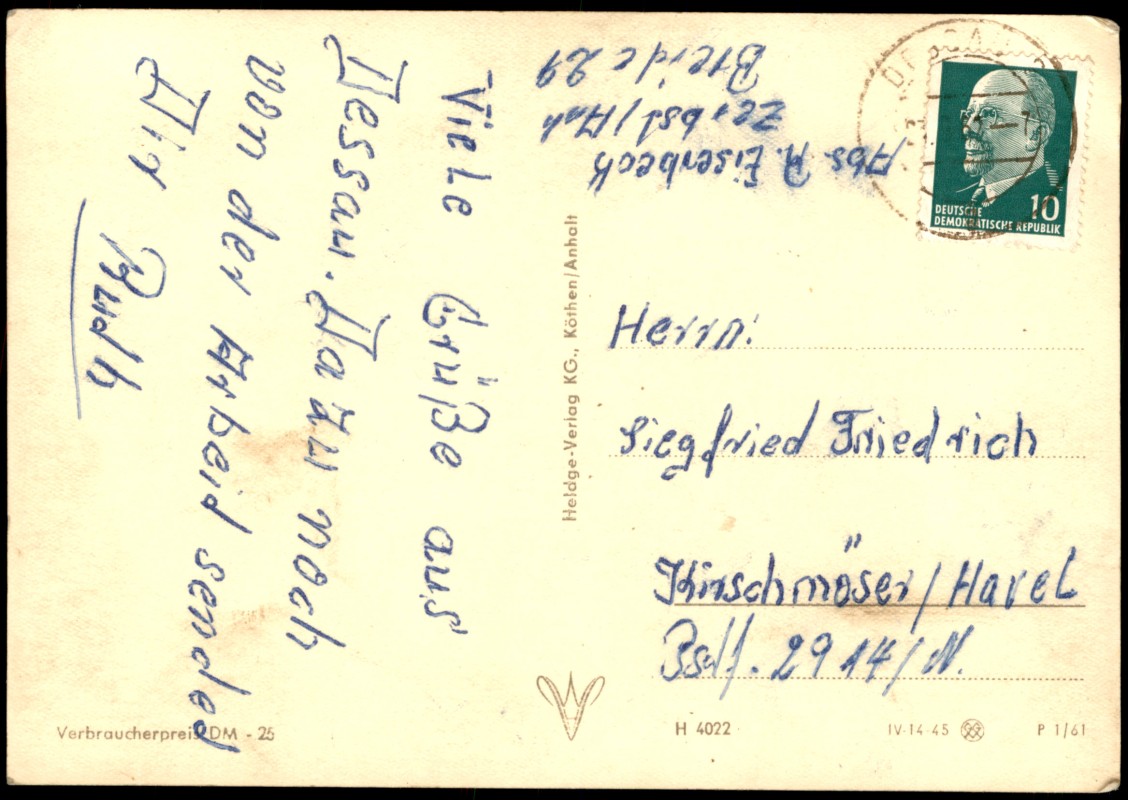 Viele Grüße aus
Dessau. Dazu noch
von der Arbeid sended
Dir
Rudh
Abs. R. Eisenbeck
Zerbst/Anh
Breide 29
Heldge-Verlag KG., Köthen/Anhalt
DEUTSCHE
DEMOKRATISCHE REPUBLIK
10
Herrn:
Siegfried Friedrich
Kirschmöser/Havel
2914/N.
Verbraucherpreis DM - 25
H 4022
IV-14-45
P 1/61